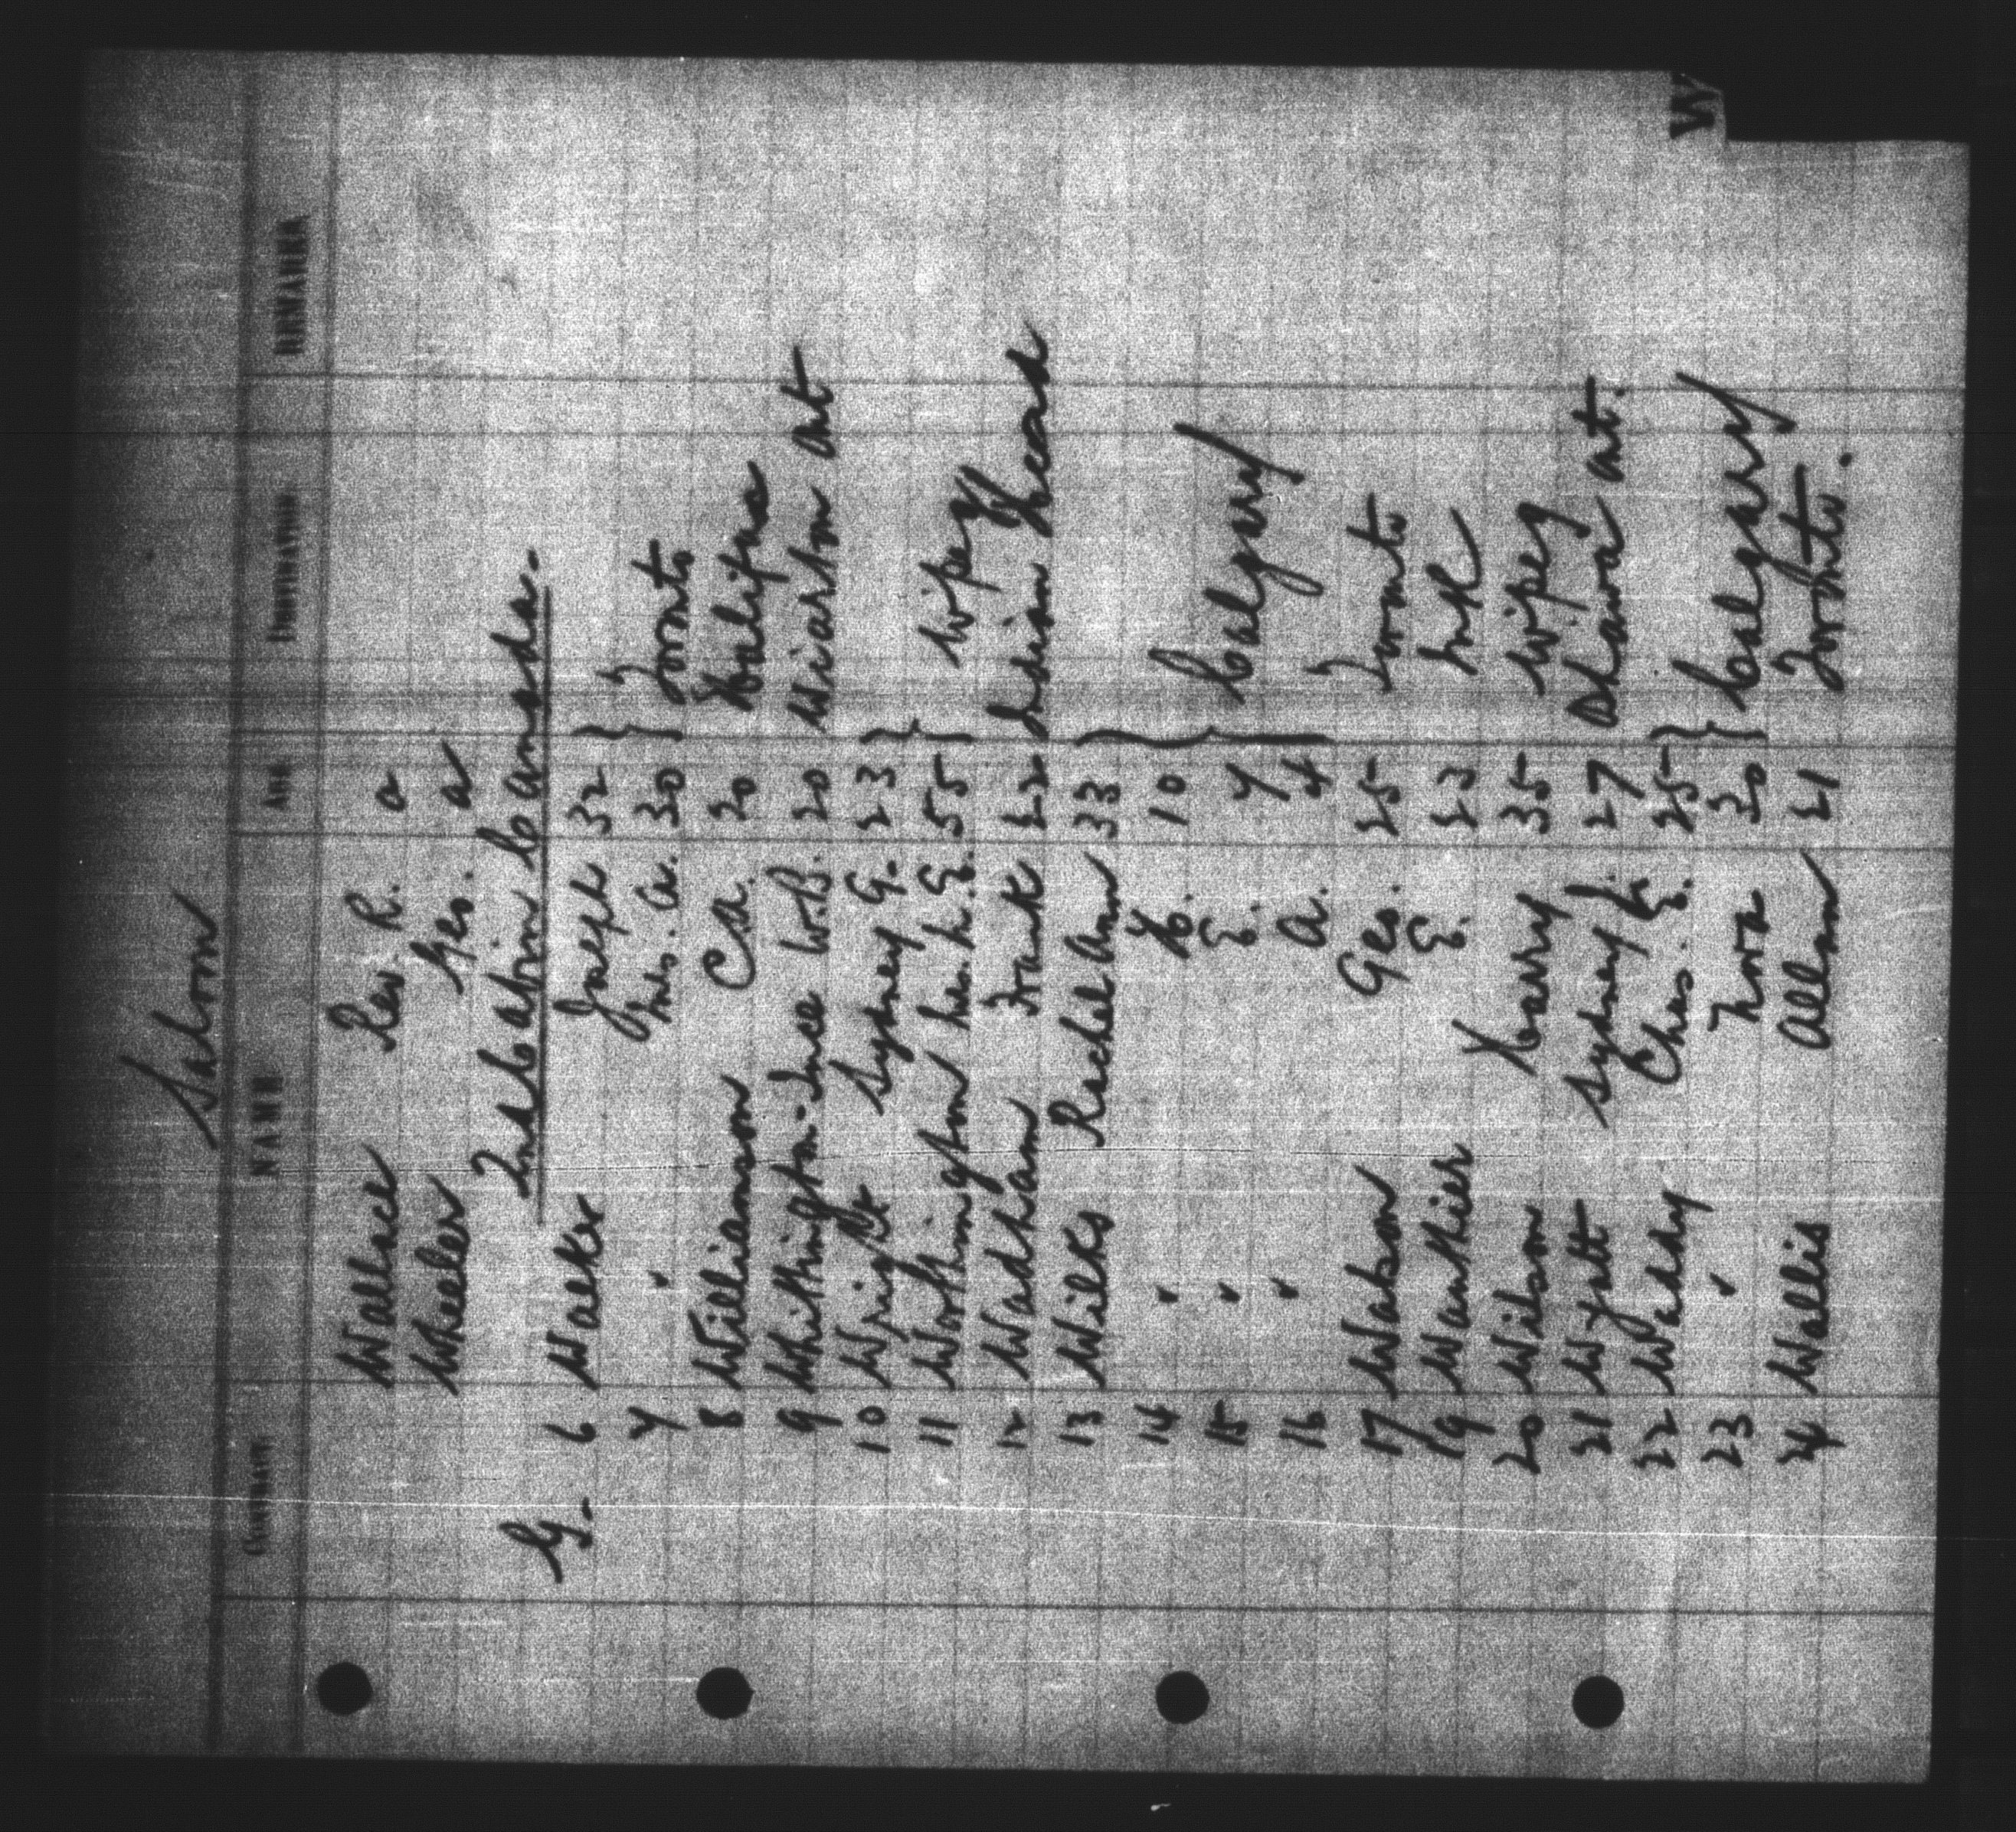 Saloon
CONTRACT NAME AGE DESTINATION REMARKS
Wallace Rev. R. a
Wheeler Geo. a
2nd Cabin Canada.
G- 6 Walker Joseph 32 }
7 " Mrs. A. 30 } Toronto
8 Williamson C.A. 20 Halifax
9 Whithington-Ince W.B. 20 Wiarton Ont
10 Wright Sydney G. 23 }
11 Worthington E. 55 } Wipeg
12 Wadham Frank 22 Indian Head
13 Wilks Rachel Ann 33
14 " H. 10
15 " E. 7 } Calgary
16 " A. 4
17 Watson Geo. 25 Toronto
19 Wauthier E. 23
20 Wilson Harry 35 Wipeg
21 Wyatt Sydney 27 Oshawa Ont.
22 Waddy Chas. E. 25 }
23 " Nora 20 } Calgary
24 Wallis Allan 21 Toronto.
W